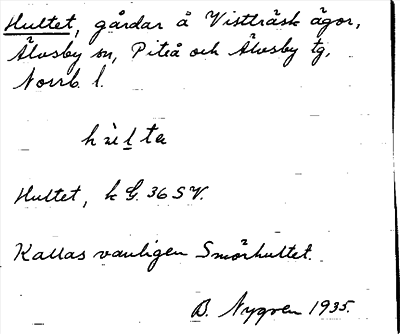 Hultet, gårdar å Vistträsk ägor,
Älvsby sn, Piteå och Älvsby tg,
Norrb. l.
Hultet, k G. 36 SV.
Kallas vanligen Smörhultet.
B. Nygren 1935.